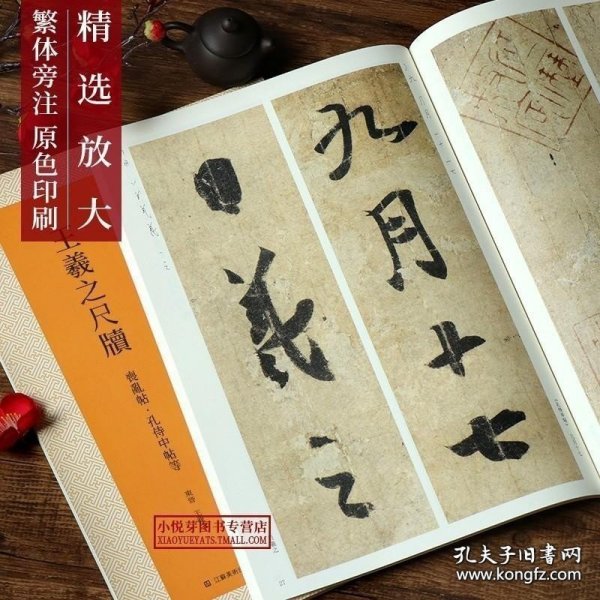 精选放大
繁体旁注 原色印刷
王羲之尺牍
喪亂帖·孔侍中帖等
東晉 王
江蘇美術
九月十七
日羲之
27
小悦芽图书专营店
XIAOYUEYATS.TMALL.COM
孔夫子旧书网
www.kongfz.com